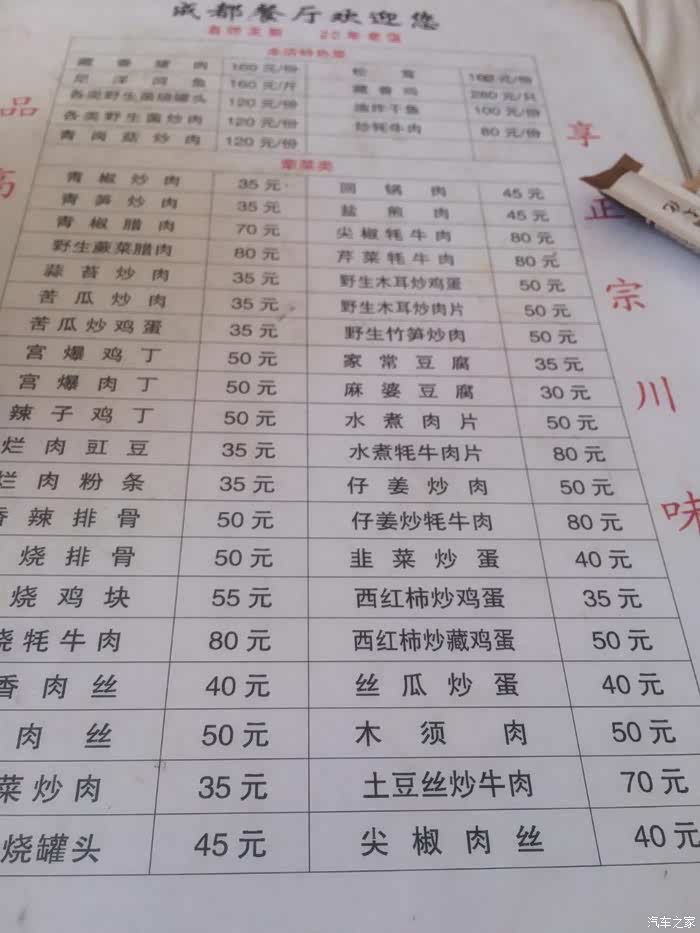 成都餐厅欢迎您
20年老店
本店特色菜
藏香猪肉 160元/份 松茸 160元/份
160元/斤 藏香鸡 280元/只
各类野生菌烧罐头 120元/份 油炸干鱼 100元/份
各类野生菌炒肉 120元/份 炒牦牛肉 80元/份
青岗菇炒肉 120元/份
荤菜类
青椒炒肉 35元 回锅肉 45元
青笋炒肉 35元 盐煎肉 45元
青椒腊肉 70元 尖椒牦牛肉 80元
野生蕨菜腊肉 80元 芹菜牦牛肉 80元
蒜苔炒肉 35元 野生木耳炒鸡蛋 50元
苦瓜炒肉 35元 野生木耳炒肉片 50元
苦瓜炒鸡蛋 35元 野生竹笋炒肉 50元
宫爆鸡丁 50元 家常豆腐 35元
宫爆肉丁 50元 麻婆豆腐 30元
辣子鸡丁 50元 水煮肉片 50元
烂肉豇豆 35元 水煮牦牛肉片 80元
烂肉粉条 35元 仔姜炒肉 50元
香辣排骨 50元 仔姜炒牦牛肉 80元
烧排骨 50元 韭菜炒蛋 40元
烧鸡块 55元 西红柿炒鸡蛋 35元
烧牦牛肉 80元 西红柿炒藏鸡蛋 50元
香肉丝 40元 丝瓜炒蛋 40元
肉丝 50元 木须肉 50元
菜炒肉 35元 土豆丝炒牛肉 70元
烧罐头 45元 尖椒肉丝 40元
品
高
享
正
宗
川
味
汽车之家